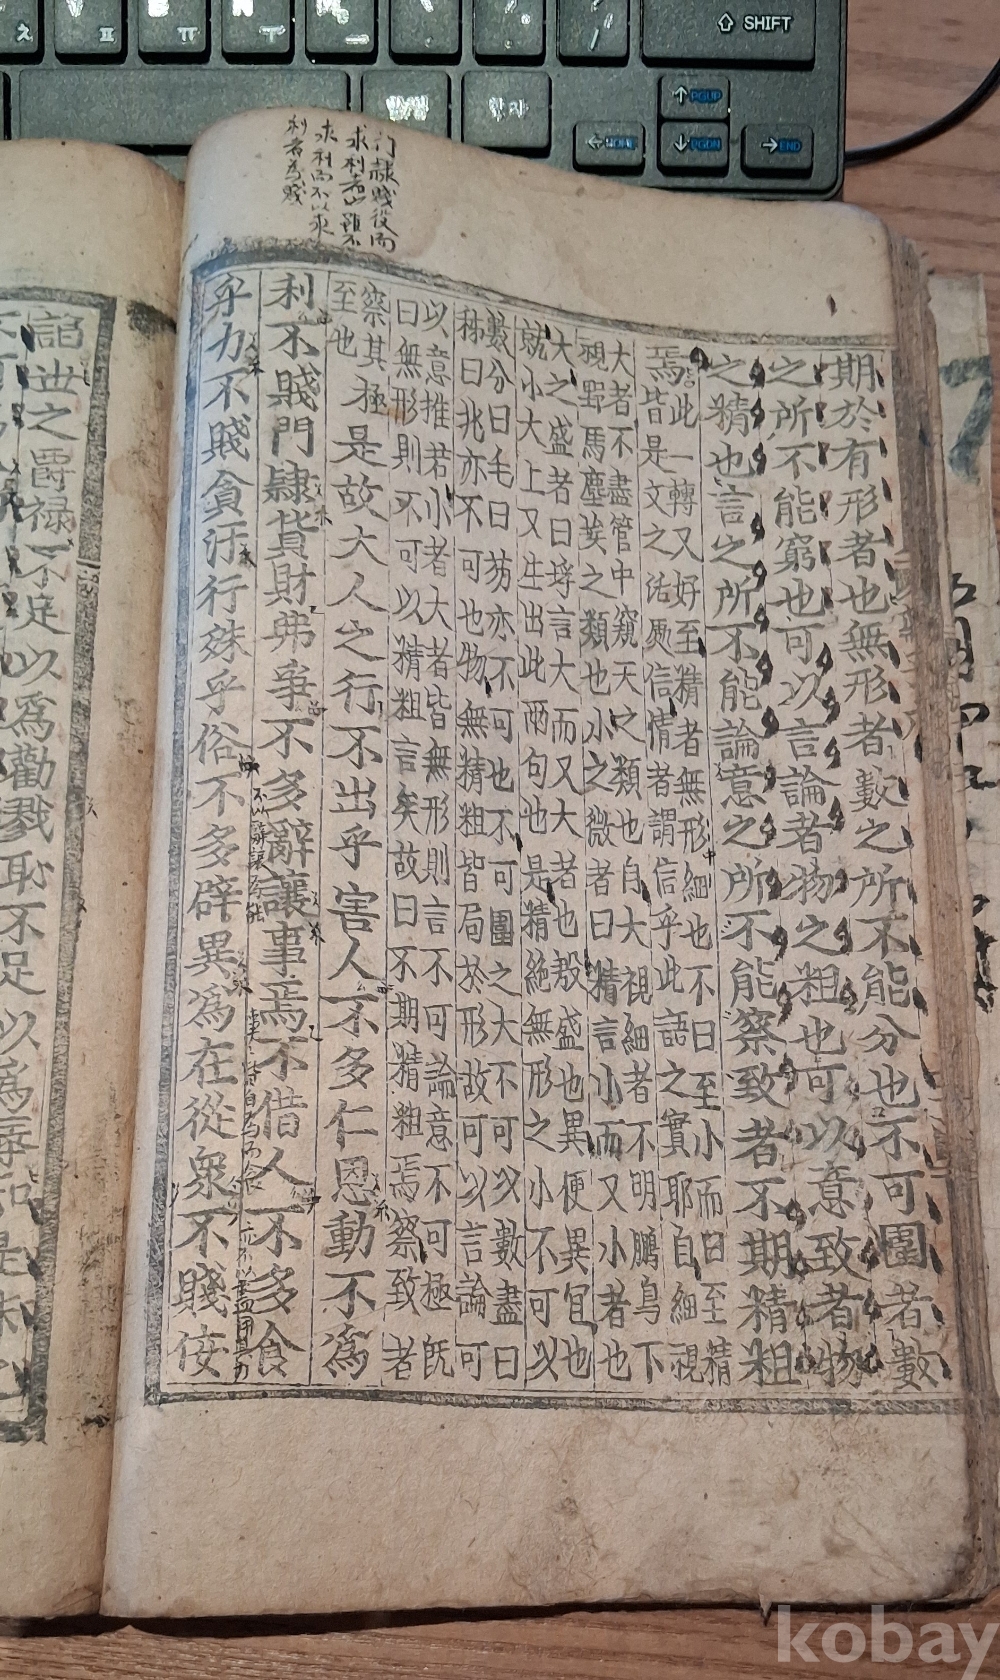 期於有形者也無形者數之所不能分也不可圍者數
之所不能窮也可以言論者物之粗也可以意致者物
之精也言之所不能論意之所不能察致者不期精粗
焉此一轉又好至精者無形細也不曰至小而曰至精
皆是文之活處信情者謂信乎此語之實耶自細視
大者不盡管中窺天之類也自大視細者不明鵬鳥下
視野馬塵埃之類也小之微者曰精言小而又小者也
大之盛者曰垺言大而又大者也殷盛也異便異宜也
就小大上又生出此兩句也是精絶無形之小不可以
數分曰毛曰芴亦不可也不可圍之大不可以數盡曰
稊曰兆亦不可也物無精粗皆局於形故可以言論可
以意推若小者大者皆無形則言不可論意不可極旣
曰無形則不可以精粗言矣故曰不期精粗焉察致者
察其極
至也
是故大人之行不出乎害人不多仁恩動不爲
利不賤門隷貨財弗爭不多辭讓事焉不借人不多食
乎力不賤貪汙行殊乎俗不多辟異爲在從衆不賤佞
門隷賤役而
求利者也雖不
求利而不以求
利者爲賤
不以辭讓爲能
諂世之爵祿不足以爲勸戮恥不足以爲辱知是
SHIFT
PGUP
HOME
PGDN
END
한자
ㅊ
ㅍ
ㅠ
ㅜ
ㅡ
kobay